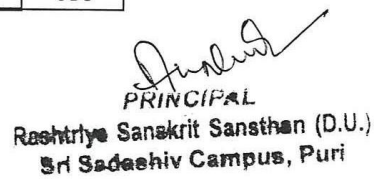 PRINCIPAL
Rashtriya Sanskrit Sansthan (D.U.)
Sri Sadashiv Campus, Puri